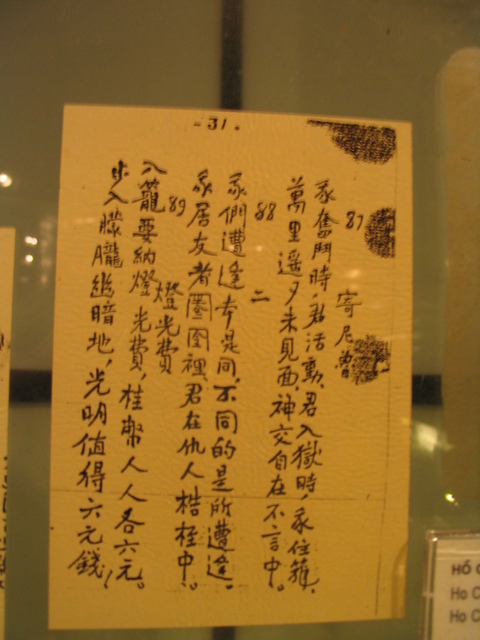 - 31 -
87
寄尼魯
我奮鬥時,君活動,君入獄時,我住籠,
萬里遥々未見面,神交自在不言中。
88
二
我們遭逢本是同,不同的是所遭逢。
我居友者圈囹裡,君在仇人梏桎中。
89
燈光費
入籠要納燈光費,桂幣人人各六元。
步入朦朧幽暗地,光明值得六元錢!
HỒ C
Ho C
Ho C